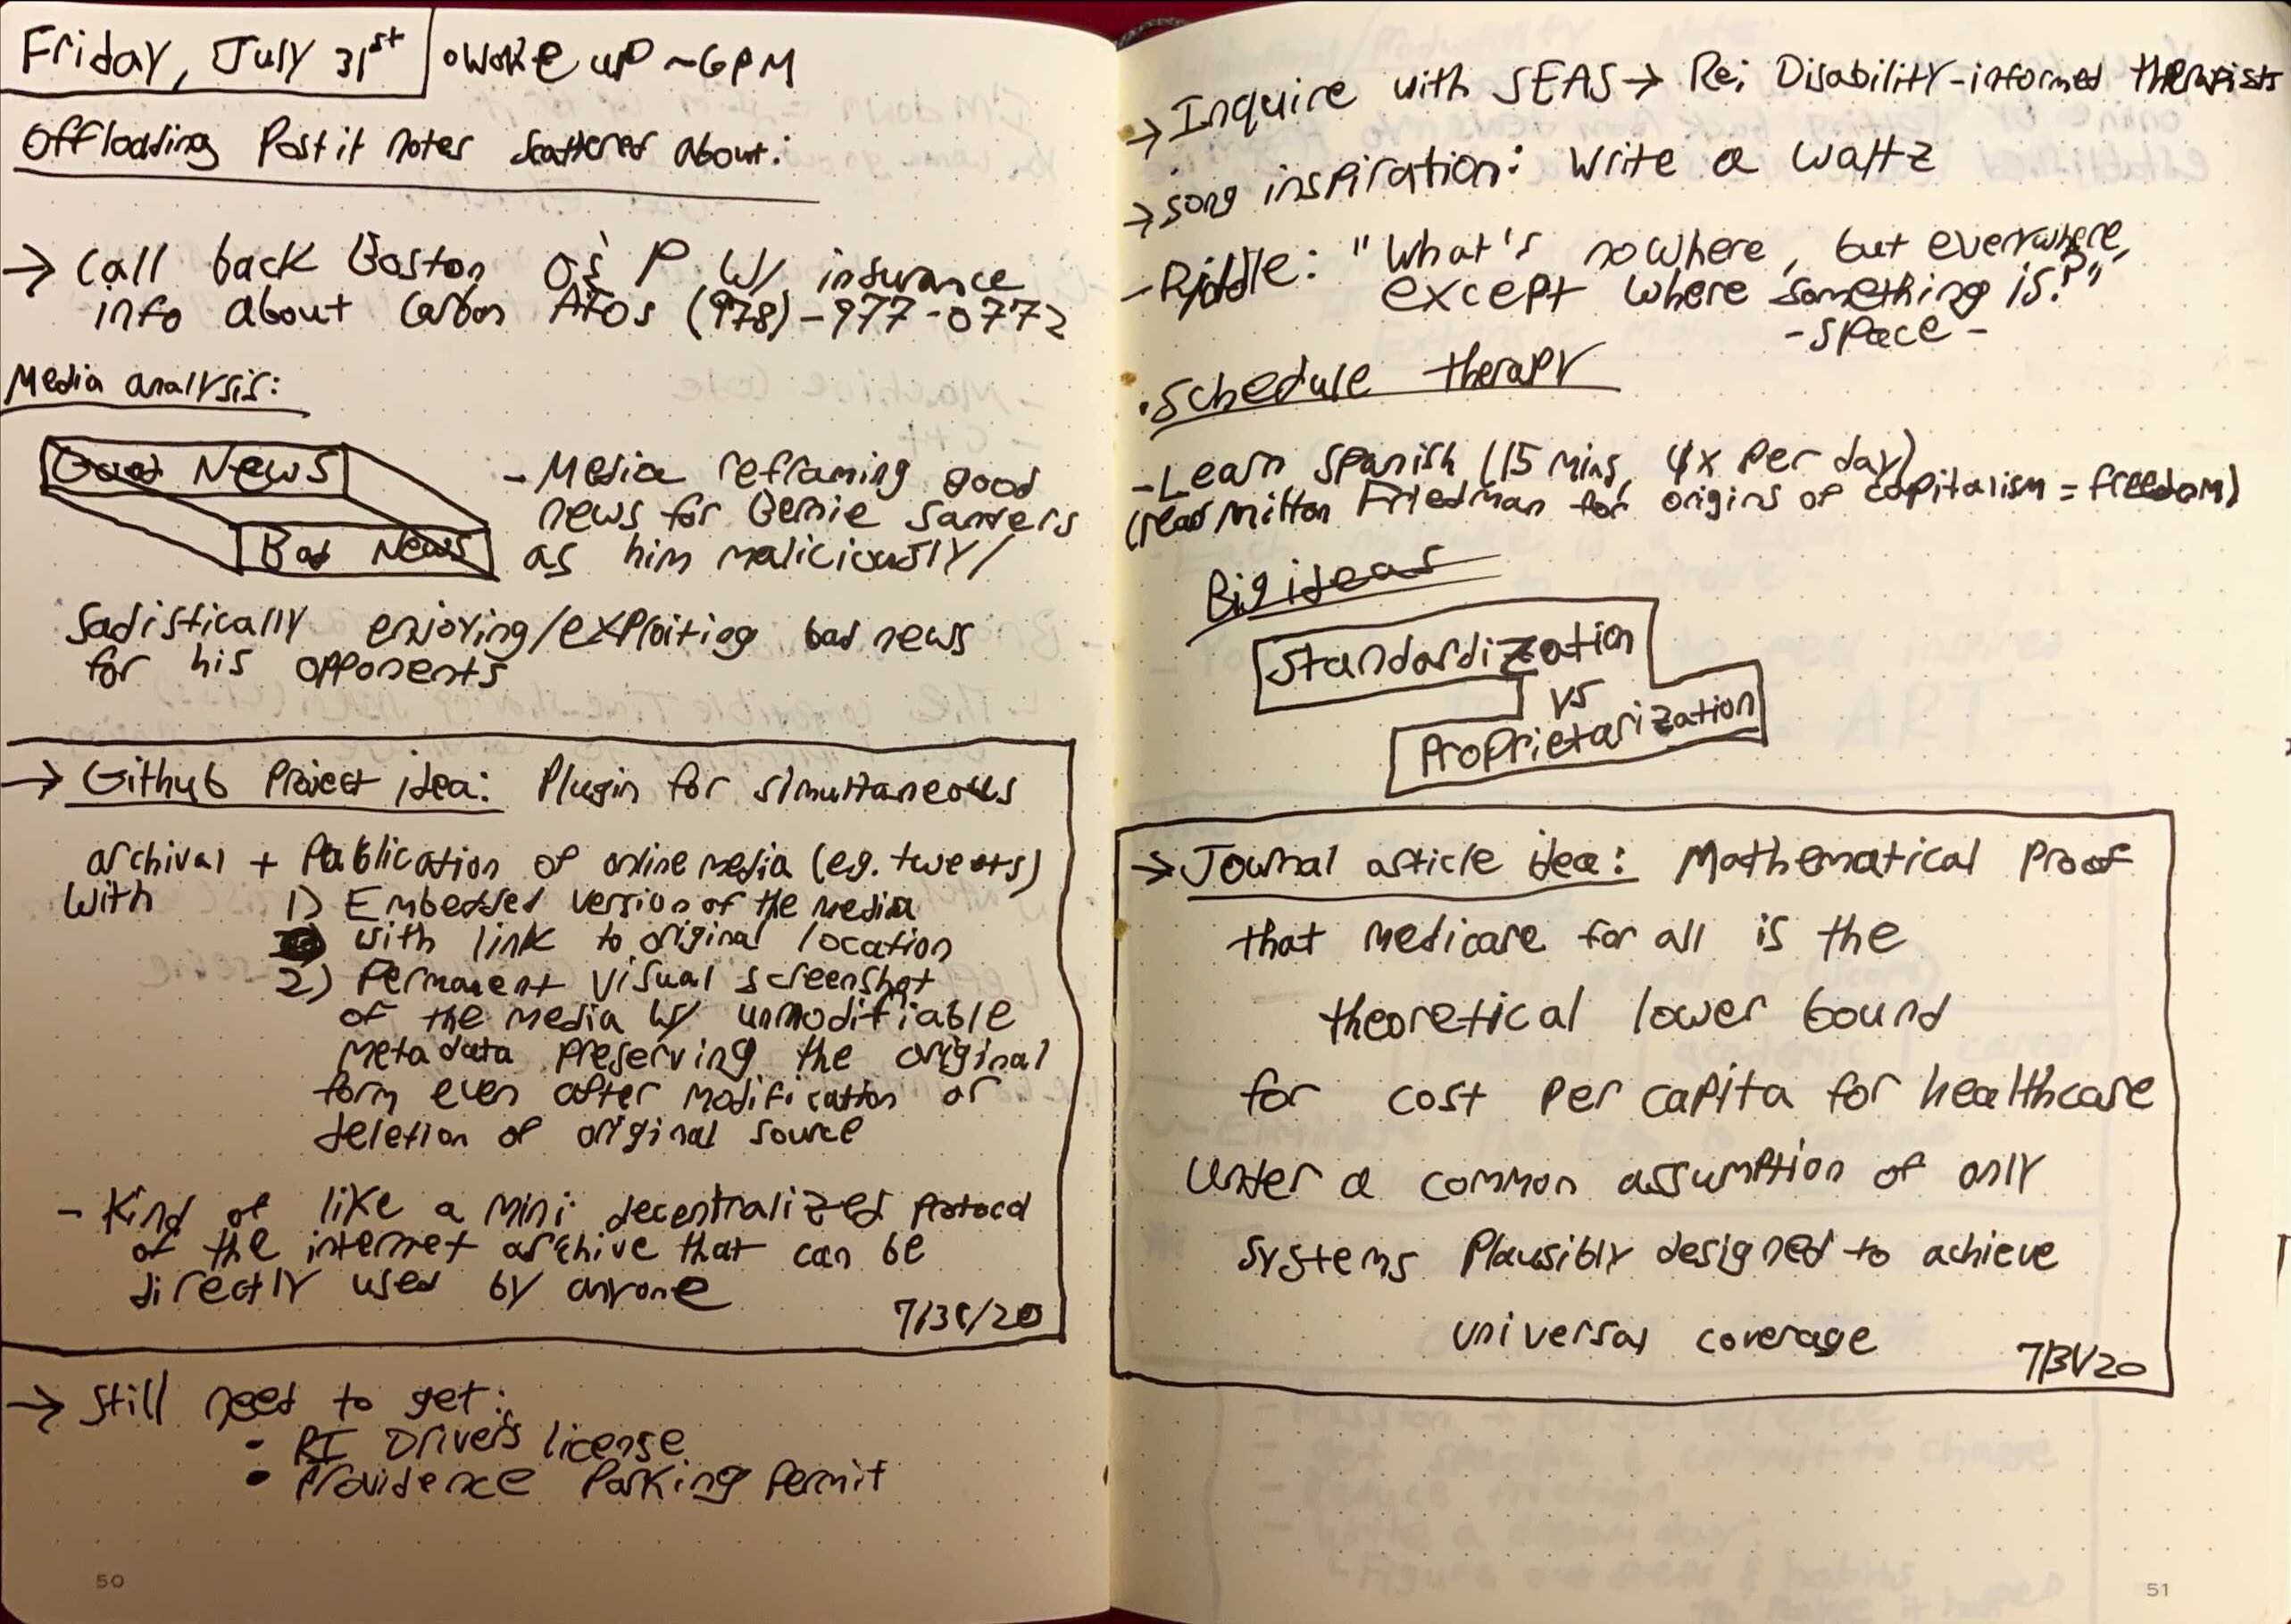 Friday, July 31st
• Woke up ~6PM
Offloading Post it notes scattered about:
→ Call back Boston O & P w/ insurance
info about Carbon AFOs (978)-977-0772
Media analysis:
Good News
Bad News
- Media reframing good
news for Bernie Sanders
as him maliciously/
Sadistically enjoying/exploiting bad news
for his opponents
→ Github Project idea: Plugin for simultaneous
archival + Publication of online media (eg. tweets)
With
1) Embedded version of the media
with link to original location
2) Permanent visual screenshot
of the media w/ unmodifiable
metadata preserving the original
form even after modification or
deletion of original source
- Kind of like a mini decentralized protocol
of the internet archive that can be
directly used by anyone
7/31/20
→ Still need to get:
• RI Drivers license
• Providence Parking Permit
50
→ Inquire with SEAS → Re: Disability-informed therapists
→ song inspiration: Write a waltz
- Riddle: "What's nowhere, but everywhere,
except where something is?"
- space -
• Schedule therapy
- Learn Spanish (15 mins, 4x per day)
(read Milton Friedman for origins of capitalism = freedom)
Big ideas
Standardization
vs
Proprietarization
→ Journal article idea: Mathematical Proof
that medicare for all is the
theoretical lower bound
for cost per capita for healthcare
Under a common assumption of only
systems plausibly designed to achieve
universal coverage
7/31/20
51